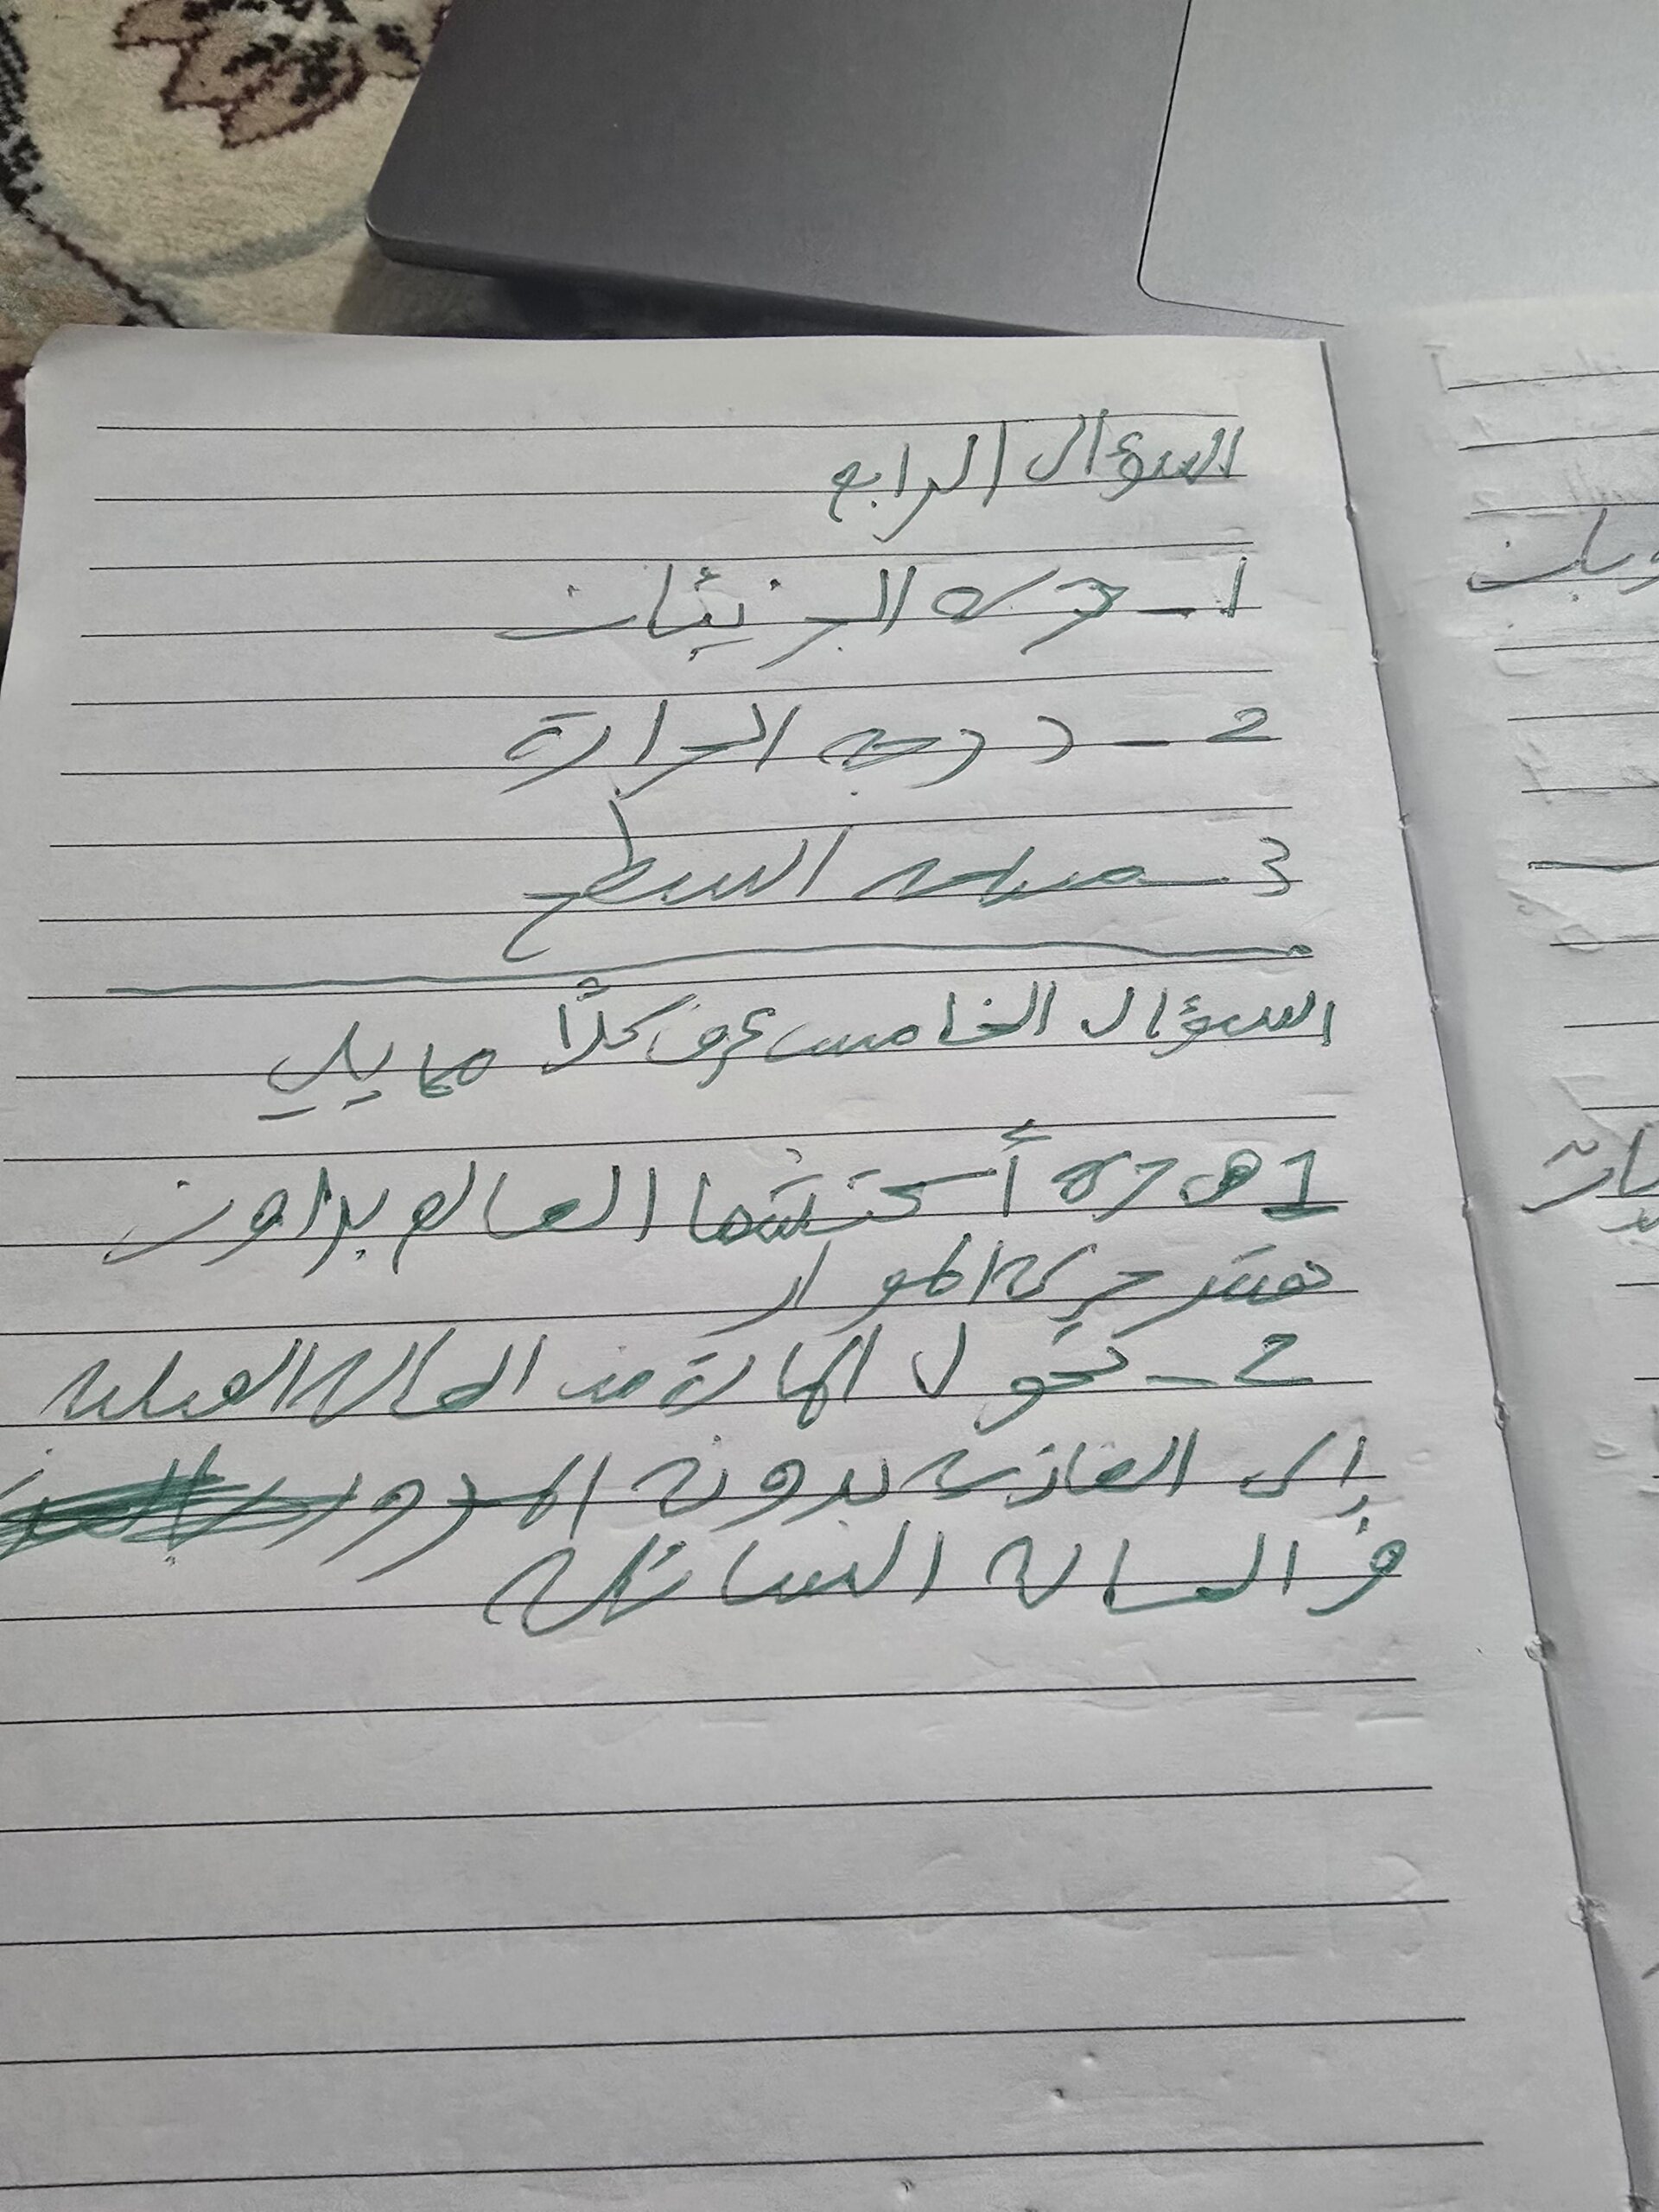 السؤال الرابع
1 - حركه الجزيئات
2 - درجه الحرارة
3 - مساحه السطح
السؤال الخامس عرف كلاً مما يلي
1 حركه أكتشفها العالم براون
حركه المواد
2 - تحول المادة من الحاله الصلبه
إلى الغازيه بدون المرور
في الحاله السائله